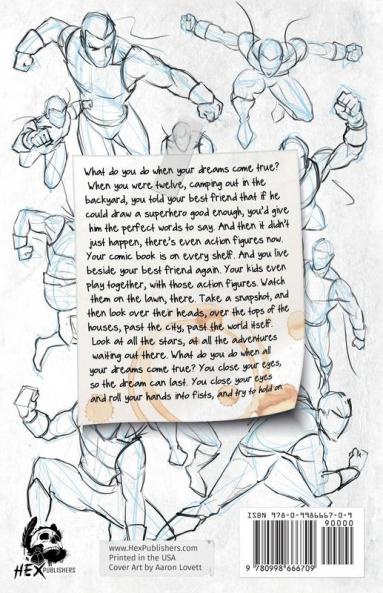 What do you do when your dreams come true?
When you were twelve, camping out in the
backyard, you told your best friend that if he
could draw a superhero good enough, you'd give
him the perfect words to say. And then it didn't
just happen, there's even action figures now.
Your comic book is on every shelf. And you live
beside your best friend again. Your kids even
play together, with those action figures. Watch
them on the lawn, there. Take a snapshot, and
then look over their heads, over the tops of the
houses, past the city, past the world itself.
Look at all the stars, at all the adventures
waiting out there. What do you do when all
your dreams come true? You close your eyes,
so the dream can last. You close your eyes
and roll your hands into fists, and try to hold on.
HEX PUBLISHERS
www.HexPublishers.com
Printed in the USA
Cover Art by Aaron Lovett
ISBN 978-0-9986667-0-9
90000
9 780998 666709